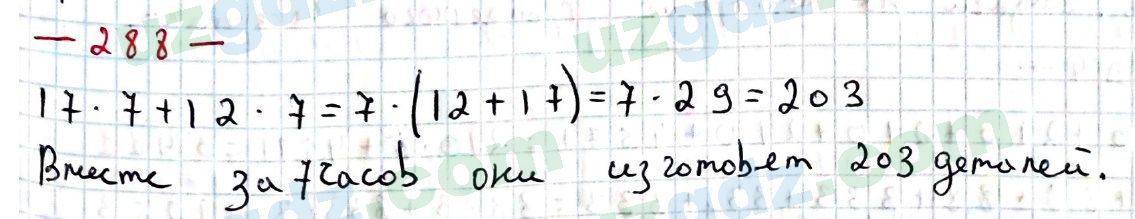 — 288 —
17 · 7 + 12 · 7 = 7 · (12 + 17) = 7 · 29 = 203
Вместе за 7 часов они изготовет 203 деталей.